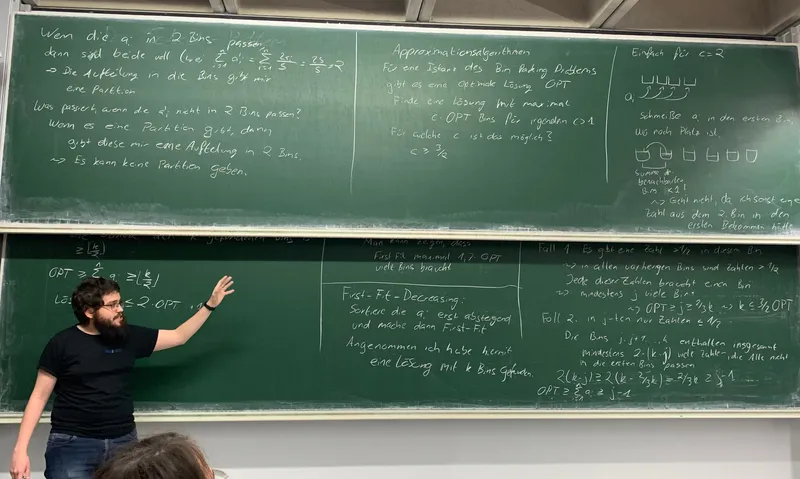 Wenn die aᵢ in 2 Bins passen,
dann sind beide voll (weil Σ aᵢ' = Σ 2sᵢ/S = 2S/S = 2
→ Die Aufteilung in die Bins gibt mir
eine Partition
Was passiert, wenn die aᵢ' nicht in 2 Bins passen?
Wenn es eine Partition gibt, dann
gibt diese mir eine Aufteilung in 2 Bins.
→ Es kann keine Partition geben.
Approximationsalgorithmen
Für eine Instanz des Bin Packing Problems
gibt es eine Optimale Lösung OPT
Finde eine Lösung mit maximal
c·OPT Bins für irgendein c>1
Für welche c ist das möglich?
c ≥ 3/2
Einfach für c=2
aᵢ
Schmeiße aᵢ in den ersten Bin,
wo noch Platz ist.
Summe
benachbarten
Bin <1!
→ Geht nicht, da ich sonst eine
Zahl aus dem 2. Bin in den
ersten bekommen hätte
≥⌊k/2⌋
OPT ≥ Σ aᵢ ≥⌊k/2⌋
≤ 2·OPT
Man kann zeigen, dass
First Fit maximal 1,7 OPT
viele Bins braucht
First-Fit-Decreasing:
Sortiere die aᵢ erst absteigend
und mache dann First-Fit
Angenommen ich habe hiermit
eine Lösung mit k Bins gefunden
Fall 1. Es gibt eine Zahl >1/2 in diesem Bin
→ in allen vorherigen Bins sind Zahlen > 1/2
Jede dieser Zahlen braucht einen Bin
→ mindestens j viele Bins
→ OPT ≥ j ≥ 2/3k → k ≤ 3/2 OPT
Fall 2. in j-ten nur Zahlen ≤ 1/2
Die Bins j, j+1, ..., k enthalten insgesamt
mindestens 2·(k-j) viele Zahlen, die Alle nicht
in die ersten Bins passen
2(k-j) ≥ 2(k-2/3k) = 2/3k ≥ j-1
OPT ≥ Σ aᵢ ≥ j-1